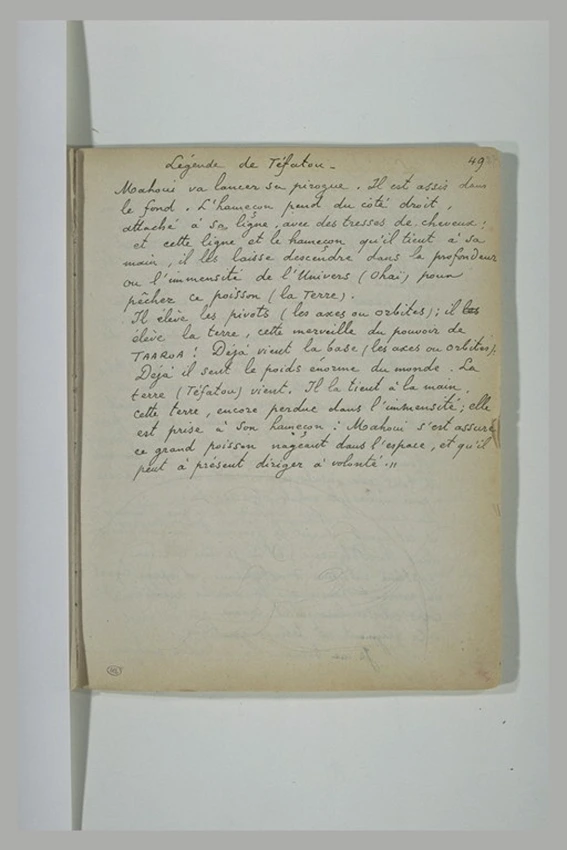 Légende de Téfatou _
49
Mahoui va lancer sa pirogue. Il est assis dans
le fond. L'hameçon pend du côté droit,
attaché à sa ligne, avec des tresses de cheveux ;
et cette ligne et le hameçon qu'il tient à sa
main, il les laisse descendre dans la profondeur
ou l'immensité de l'Univers (Ohai) pour
pêcher ce poisson (la Terre).
Il élève les pivots (les axes ou orbites) ; il
élève la terre, cette merveille du pouvoir de
TAAROA ! Déjà vient la base (les axes ou orbites).
Déjà il sent le poids énorme du monde. La
terre (Téfatou) vient. Il la tient à la main,
cette terre, encore perdue dans l'immensité ; elle
est prise à son hameçon : Mahoui s'est assuré
ce grand poisson nageant dans l'espace, et qu'il
peut à présent diriger à volonté."